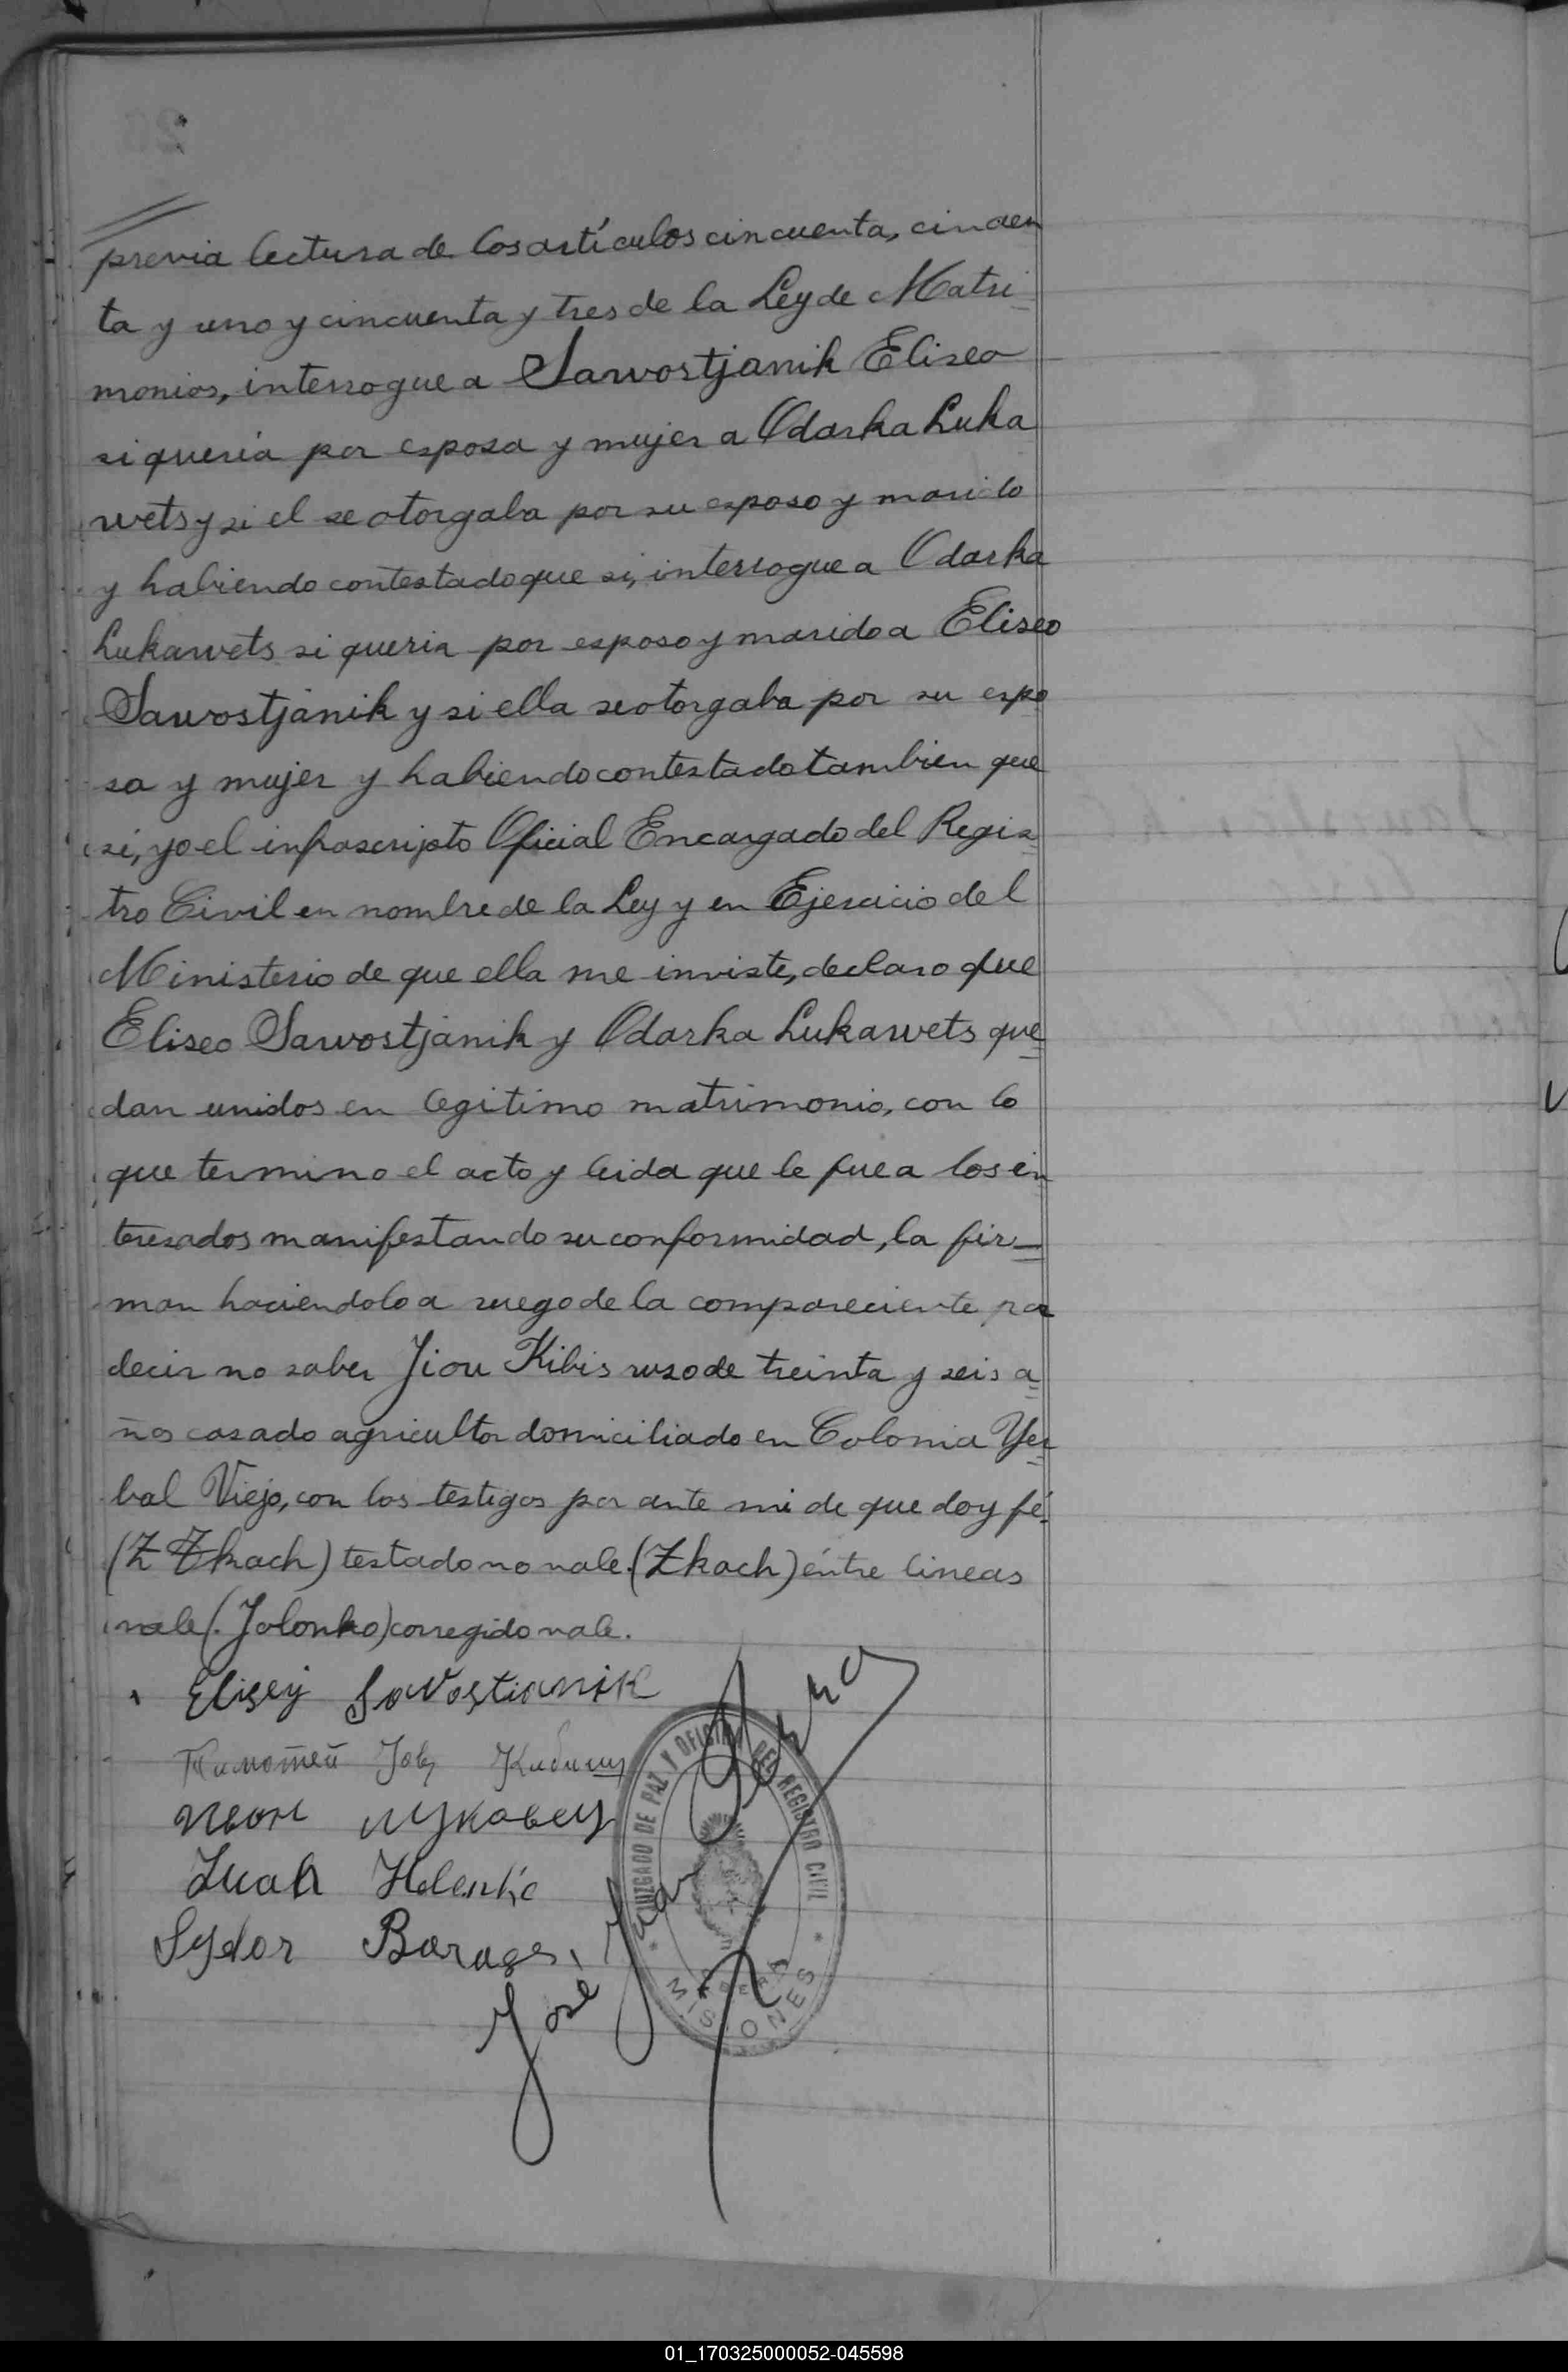 previa lectura de los artículos cincuenta, cincuen
ta y uno y cincuenta y tres de la Ley de Matri
monios, interrogue a Sawostjanik Eliseo
si quería por esposa y mujer a Odarka Luka
wets y si el se otorgaba por su esposo y marido
y habiendo contestado que si, interrogue a Odarka
Lukawets si queria por esposo y marido a Eliseo
Sawostjanik y si ella se otorgaba por su espo
sa y mujer y habiendo contestado tambien que
si, yo el infrascripto Oficial Encargado del Regis
tro Civil en nombre de la Ley y en Ejercicio del
Ministerio de que ella me inviste, declaro que
Eliseo Sawostjanik y Odarka Lukawets que
dan unidos en legitimo matrimonio, con lo
que termino el acto y leida que le fue a los in
teresados manifestando su conformidad, la fir
man haciendolo a ruego de la compareciente por
decir no saber Jiou Kibis ruso de treinta y seis a
ños casado agricultor domiciliado en Colonia Yer
bal Viejo, con los testigos por ante mi de que doy fé.
(Z Zkach) testado no vale. (Zkach) éntre lineas
vale (. Jolonko) corregido vale.
Elisey Sovostianik
Тимотей Кибиш
Ивон Луковец
Sydor
José
JUZGADO DE PAZ Y OFICINA DEL REGISTRO CIVIL
MISIONES
01_170325000052-045598